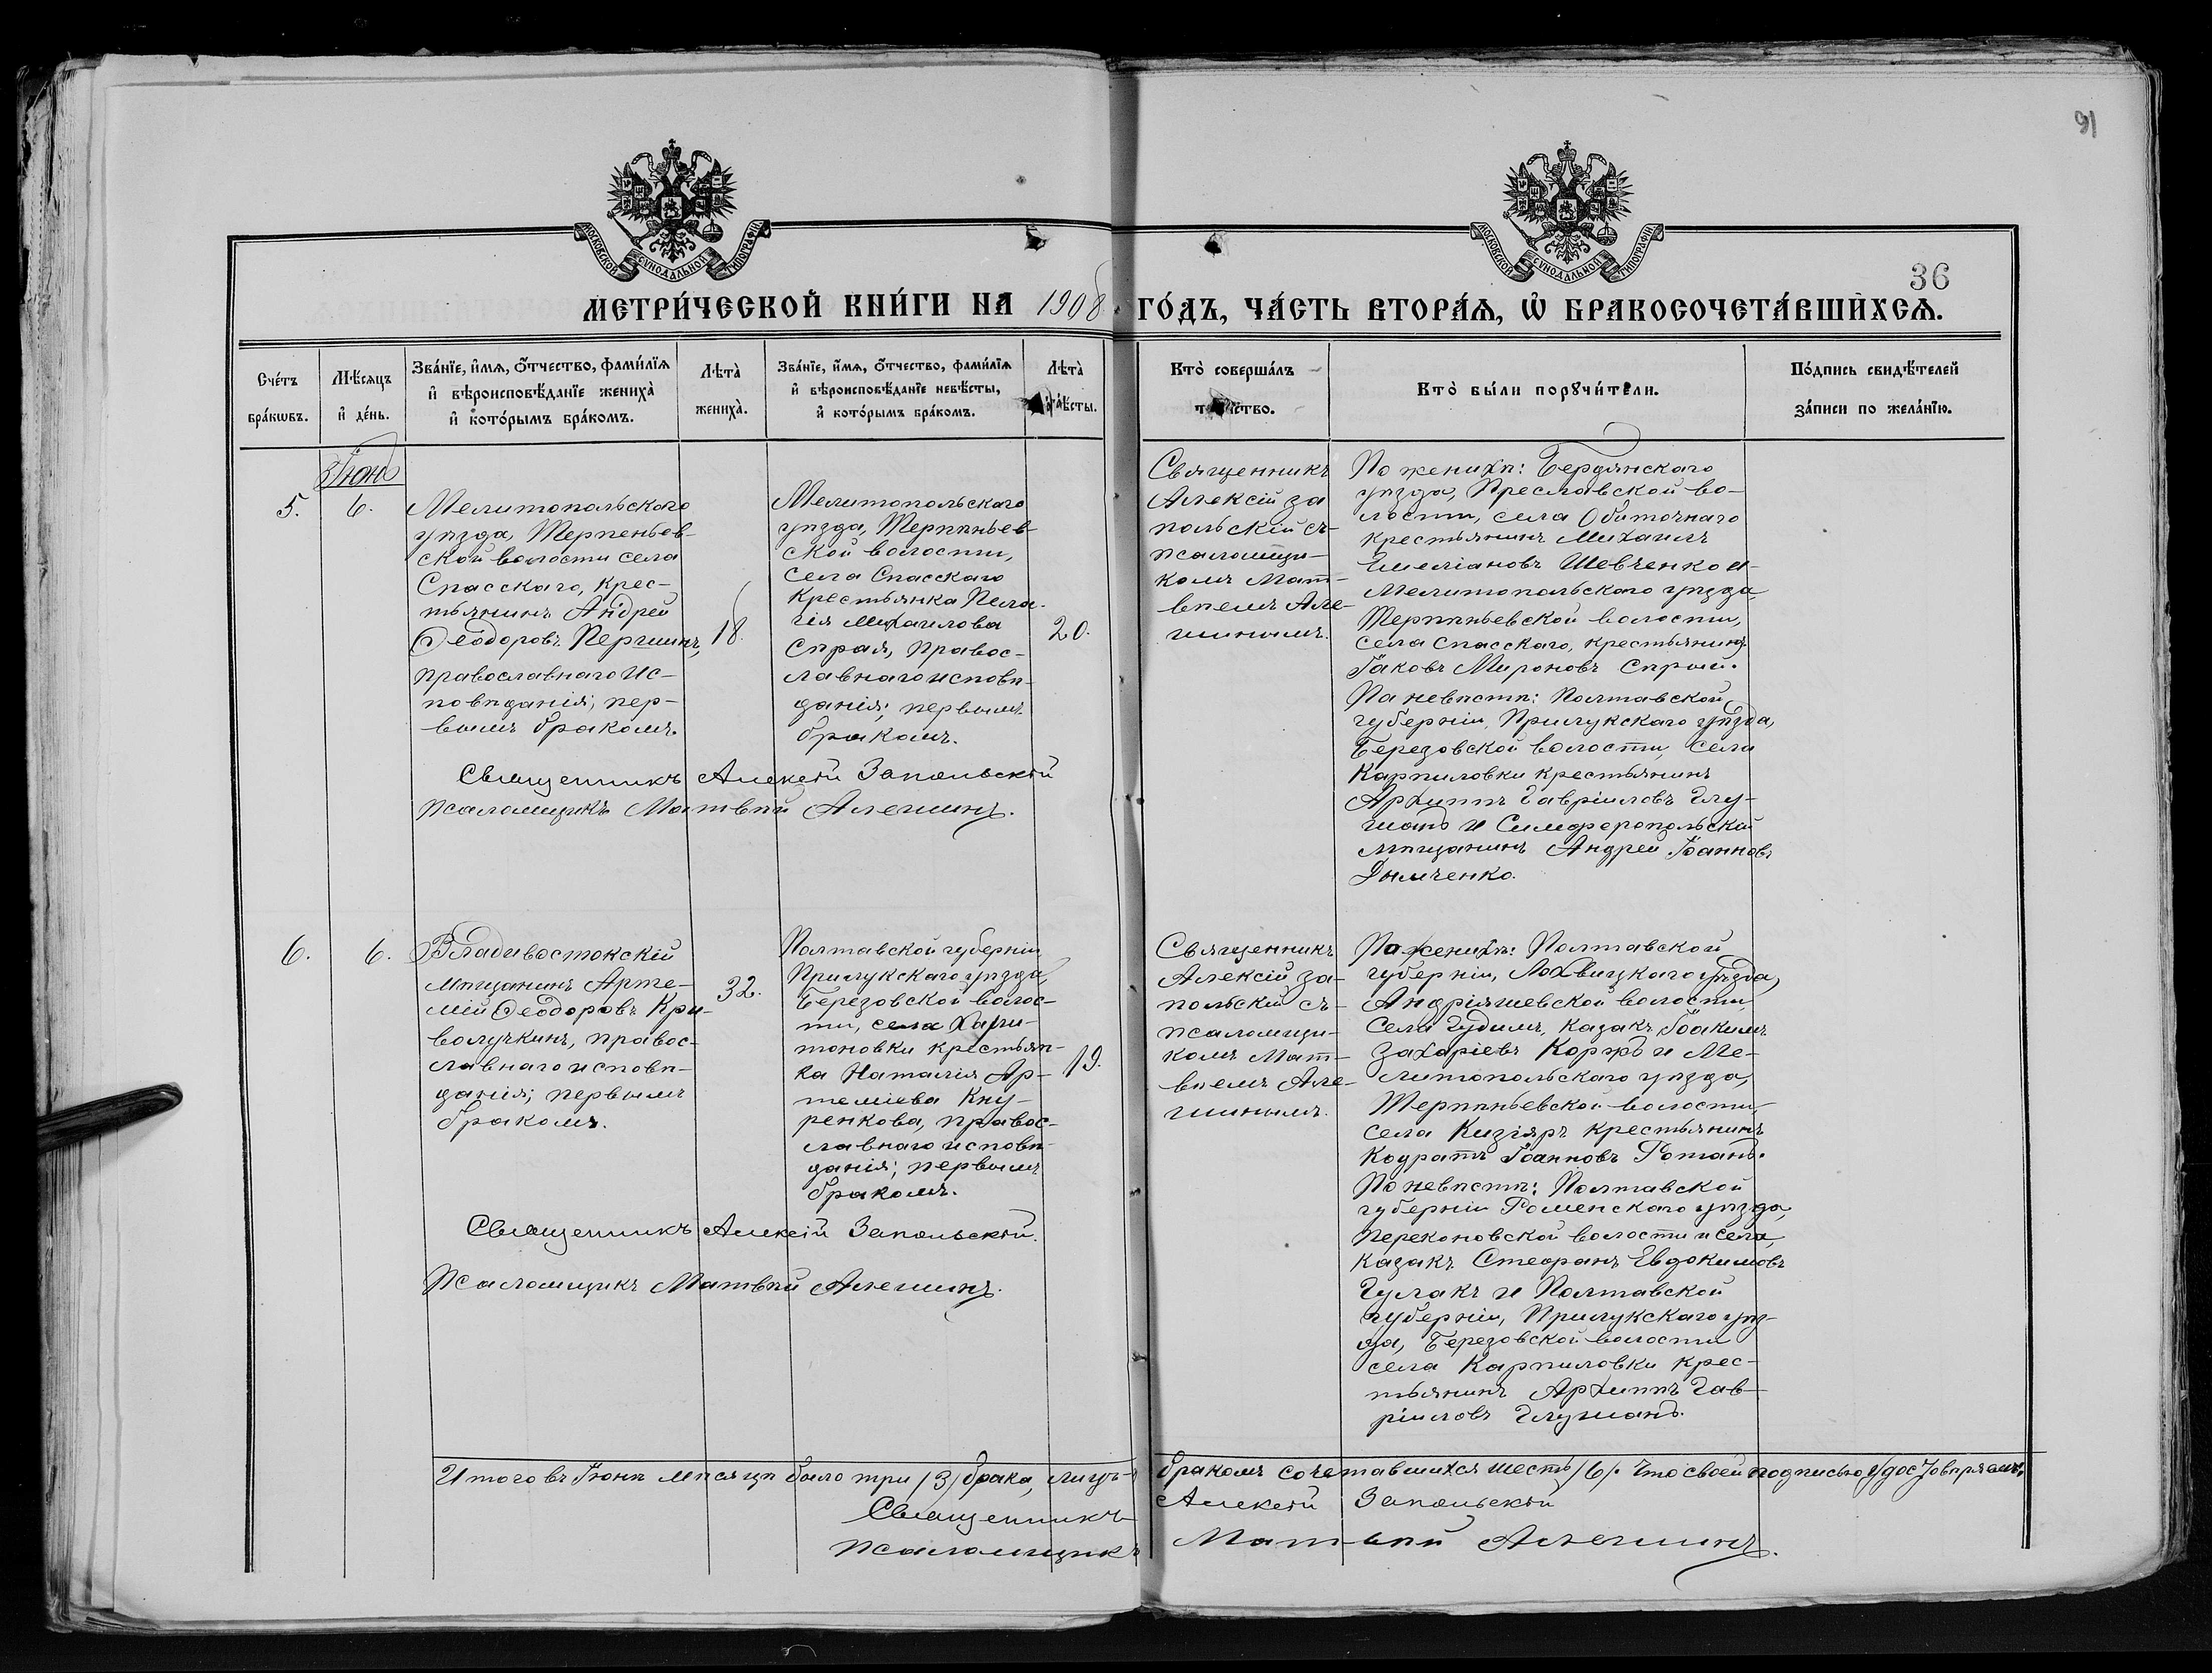 91
МОСКОВСКОЙ СѴНОДАЛЬНОЙ ТИПОГРАФІИ
МОСКОВСКОЙ СѴНОДАЛЬНОЙ ТИПОГРАФІИ
36
МЕТРИ́ЧЕСКОЙ КНИ́ГИ НА 1908 ГО́ДЪ, ЧА́СТЬ ВТОРА́Ѧ, Ѡ БРАКОСОЧЕТА́ВШИХСѦ.
Сче́тъ
бра́кѡвъ.
Мѣ́сяцъ
и де́нь.
Зва́нїе, и́мѧ, о́тчество, фами́лїѧ
и вѣроисповѣ́данїе жениха̀
и кото́рымъ бра́комъ.
Лѣта̀
жениха̀.
Зва́нїе, и́мѧ, о́тчество, фами́лїѧ
и вѣроисповѣ́данїе невѣ́сты,
и кото́рымъ бра́комъ.
Лѣта̀
невѣ́сты.
Кто̀ соверша́лъ
таинство.
Кто̀ бы́ли порꙋчи́тели.
По́дпись свидѣ́телей
за́писи по жела́нїю.
Іюнь
5.
6.
Мелитопольскаго
уѣзда, Терпеньев-
ской волости села
Спасскаго, крес-
тьянинъ Андрей
Ѳеодоровъ Першинъ,
православнаго ис-
повѣданія; пер-
вымъ бракомъ.
18.
Мелитопольскаго
уѣзда, Терпѣньев-
ской волости,
села Спасскаго
крестьянка Пела-
гія Михаилова
Сѣрая, правос-
лавнаго исповѣ-
данія; первымъ
бракомъ.
20.
Священникъ Алексій Запольскій
Псаломщикъ Матвѣй Алешинъ.
Священникъ
Алексій За
польскій съ
псаломщи-
комъ Мат-
вѣемъ Але-
шинымъ.
По женихѣ: Бердянскаго
уѣзда, Преславской во-
лости, села Обиточнаго
крестьянинъ Михаилъ
Емеліановъ Шевченко и
Мелитопольскаго уѣзда
Терпѣньевской волости,
села Спасскаго, крестьянинъ
Іаковъ Мироновъ Сѣрый.
По невѣстѣ: Полтавской
губерніи, Прилукскаго уѣзда,
Березовской волости, села
Карпиловки крестьянинъ
Архиппъ Гавріиловъ Глу-
шань и Симферопольскій
мѣщанинъ Андрей Іоанновъ
Дымченко.
6.
6.
Владивостокскій
мѣщанинъ Арте-
мій Ѳеодоровъ Кри-
волучкинъ, правос-
лавнаго исповѣ-
данія; первымъ
бракомъ.
32.
Полтавской губерніи
Прилукскаго уѣзда,
Березовской волос-
ти, села Хари-
тоновки крестьян-
ка Наталія Ар-
теміева Кну-
ренкова, правос-
лавнаго исповѣ-
данія; первымъ
бракомъ.
19.
Священникъ Алексій Запольскій.
Псаломщикъ Матвѣй Алешинъ.
Священникъ
Алексій За-
польскій съ
псаломщи-
комъ Мат-
вѣемъ Але-
шинымъ.
По женихѣ: Полтавской
губерніи, Лохвицкаго уѣзда,
Андріяшевской волости,
села Гудимъ, казакъ Іоакимъ
Захаріевъ Коржъ и Ме-
литопольскаго уѣзда,
Терпѣньевской волости,
села Кизіяръ крестьянинъ
Кодратъ Іоанновъ Ротань.
По невѣстѣ: Полтавской
губерніи Роменскаго уѣзда,
Перекоповской волости и села,
казакъ Стефанъ Евдокимовъ
Гулакъ и Полтавской
губерніи, Прилукскаго уѣз-
да, Березовской волости
села Карпиловки крес-
тьянинъ Архиппъ Гав-
ріиловъ Глушань.
Итого въ Іюнѣ мѣсяцѣ было три /3/ брака, лицъ бракомъ сочетавшихся шесть /6/. Что своей подписью удостовѣряемъ:
Священникъ Алексій Запольскій
Псаломщикъ Матвѣй Алешинъ.